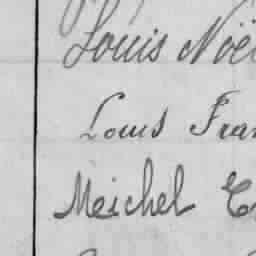 Louis Noë
Louis Fran
Meichel